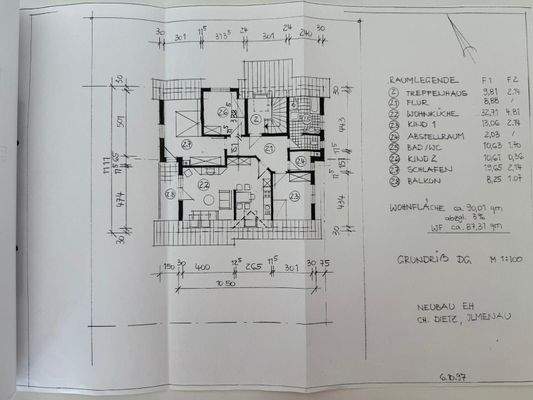 30 301 11⁵ 313⁵ 24 301 24 240 30
RAUMLEGENDE F1 F2
2 TREPPENHAUS 9,81 2.14
21 FLUR 8,88 /
22 WOHNKÜCHE 32,71 4.81
23 KIND 1 13,06 2.14
24 ABSTELLRAUM 2,03 /
25 BAD/WC 10,63 1.70
26 KIND 2 10,61 0,36
27 SCHLAFEN 19,65 2.14
28 BALKON 8,25 1.07
WOHNFLÄCHE ca. 90,01 qm
abzgl. 3%
WF ca. 87,31 qm
GRUNDRIß DG M 1:100
NEUBAU EH
CH. DIETZ, ILMENAU
6.10.97
30
501
1177
474
30
30
443
434
30
26
2
27
21
24
22
23
28
150 30 400 12⁵ 265 11⁵ 301 30 75
10 50